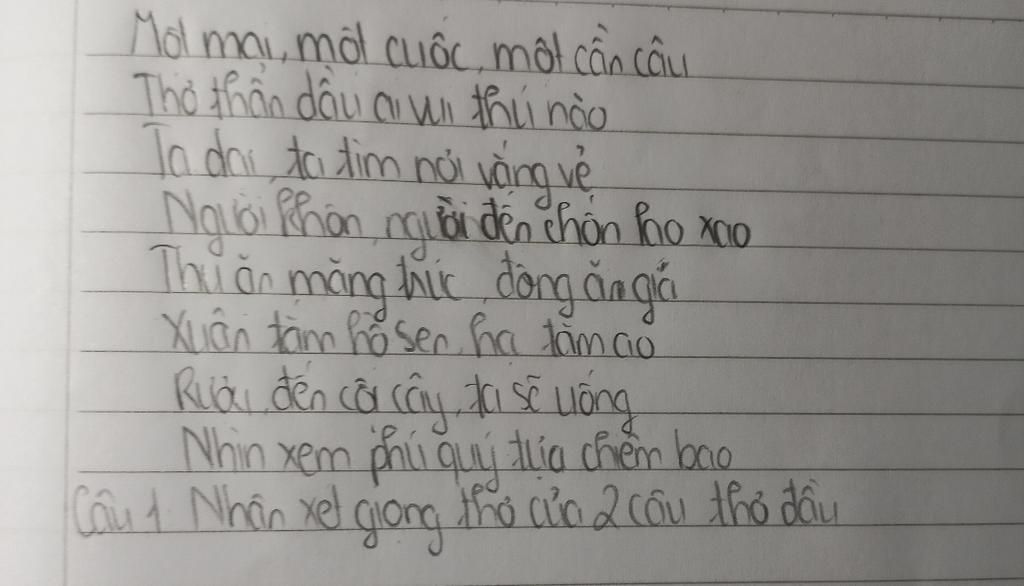 Một mai, một cuốc, một cần câu
Thơ thẩn dầu ai vui thú nào
Ta dại, ta tìm nơi vắng vẻ
Người khôn, người đến chốn lao xao
Thu ăn măng trúc, đông ăn giá
Xuân tắm hồ sen, hạ tắm ao
Rượu, đến cội cây, ta sẽ uống
Nhìn xem phú quý tựa chiêm bao
Câu 1. Nhận xét giọng thơ của 2 câu thơ đầu